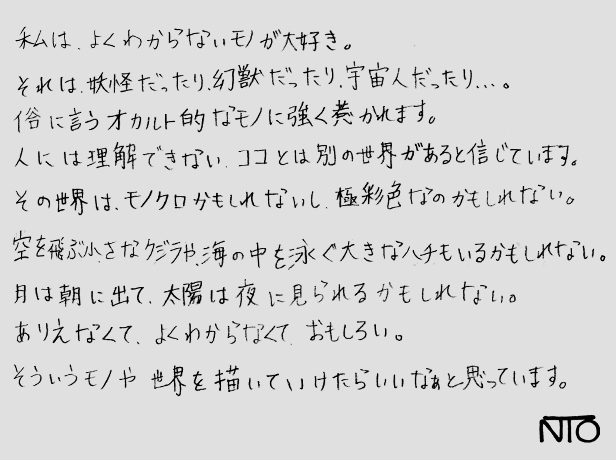 私は、よくわからないモノが大好き。
それは、妖怪だったり、幻獣だったり、宇宙人だったり…。
俗に言うオカルト的なモノに強く惹かれます。
人には理解できない、ココとは別の世界があると信じています。
その世界は、モノクロかもしれないし、極彩色なのかもしれない。
空を飛ぶ小さなクジラや、海の中を泳ぐ大きなハチもいるかもしれない。
月は朝に出て、太陽は夜に見られるかもしれない。
ありえなくて、よくわからなくて、おもしろい。
そういうモノや世界を描いていけたらいいなぁと思っています。
NTO